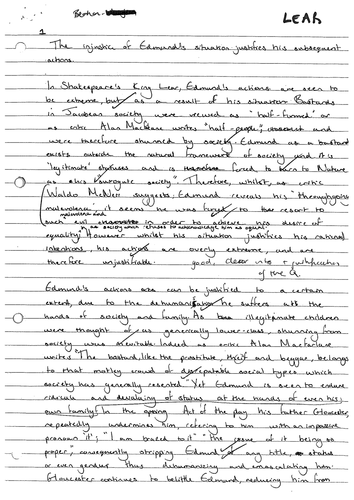 LEAR
1
The injustice of Edmund's situation justifies his subsequent
actions.
In Shakespeare's King Lear, Edmund's actions are seen to
be extreme, but as a result of his situation Bastards
in Jacobean society were viewed as "half-formed" or
as critic Alan Macfarlane writes "half-people", and
were therefore shunned by society. Edmund as a bastard
exists outside the natural framework of society and its
'legitimate' and is forced to turn to Nature
as his "surrogate society". Therefore, whilst, as critic
Waldo McNeir suggests, Edmund reveals his "thoroughgoing
malevolence", it seems he was forced to resort to
such evil in order to achieve his desire of
as society then refuses to acknowledge him as equal
equality. However whilst his situation justifies his
intentions, his actions are overly extreme, and are
therefore unjustifiable. good, clear intro + justification
of the Q.
Edmund's actions can be justified to a certain
extent, due to the dehumanisation he suffers at the
hands of society and family. As illegitimate children
were thought of as generically lower-class, shunning from
society was inevitable. Indeed as critic Alan Macfarlane
writes "The bastard, like the prostitute, thief and beggar, belongs
to that motley crowd of disreputable social types which
society has generally resented". Yet Edmund is seen to endure
ridicule and devaluing of status at the hands of even his
own family. In the opening Act of the play his father Gloucester,
repeatedly undermines him, referring to him with an impassive
pronoun "it"; "I am brazed to it" "the issue of it being so
proper", consequently stripping Edmund of any title, status
or even gender thus dehumanizing and emasculating him.
Gloucester continues to belittle Edmund, reducing him from